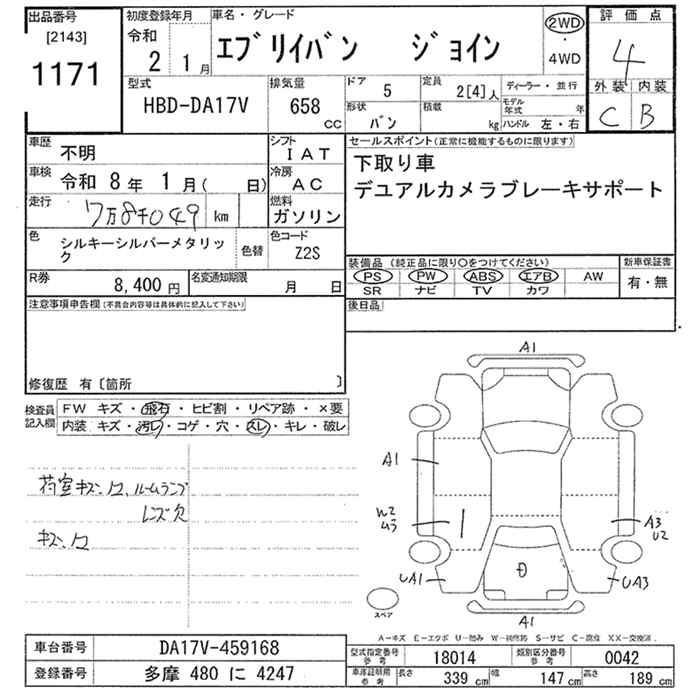 出品番号
[2143]
1171
初度登録年月
令和
2 1月
車名・グレード
エブリイバン ジョイン
2WD
・
4WD
評価点
4
外装 内装
C B
型式
HBD-DA17V
排気量
658
CC
ドア
5
定員
2[4]人
ディーラー・並行
形状
バン
積載
kg
モデル年式 年
ハンドル 左・右
車歴
不明
シフト
IAT
車検
令和 8年 1月( 日)
冷房
AC
走行
7万8千049 km
燃料
ガソリン
色
シルキーシルバーメタリック
色替
色コード
Z2S
R券
8,400円
名変通知期限
月 日
セールスポイント(正常に機能するものに限ります)
下取り車
デュアルカメラブレーキサポート
装備品(純正品に限り〇をつけてください)
新車保証書
PS PW ABS エアB AW
SR ナビ TV カワ
有・無
後日品
注意事項申告欄(不具合内容等は具体的に記入して下さい)
修復歴 有〔箇所 〕
検査員記入欄
FW キズ・飛石・ヒビ割・リペア跡・×要
内装 キズ・汚レ・コゲ・穴・スレ・キレ・破レ
荷室キズ、凹、ルームランプ
レンズ欠
キズ、凹
A1
A1
W2
ムラ
A3
U2
UA1
UA3
A1
スペア
A-キズ E-エクボ U-凹み W-補修跡 S-サビ C-腐蝕 XX-交換済
車台番号
DA17V-459168
登録番号
多摩 480 に 4247
型式指定番号
参考
18014
類別区分番号
参考
0042
車庫証明用
参考
長さ 339 cm 幅 147 cm 高さ 189 cm